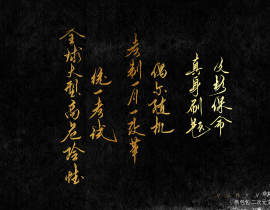 文能保命
真身刷题
偶尔随机
考制一月一改革
统一考试
全球大型高危险性